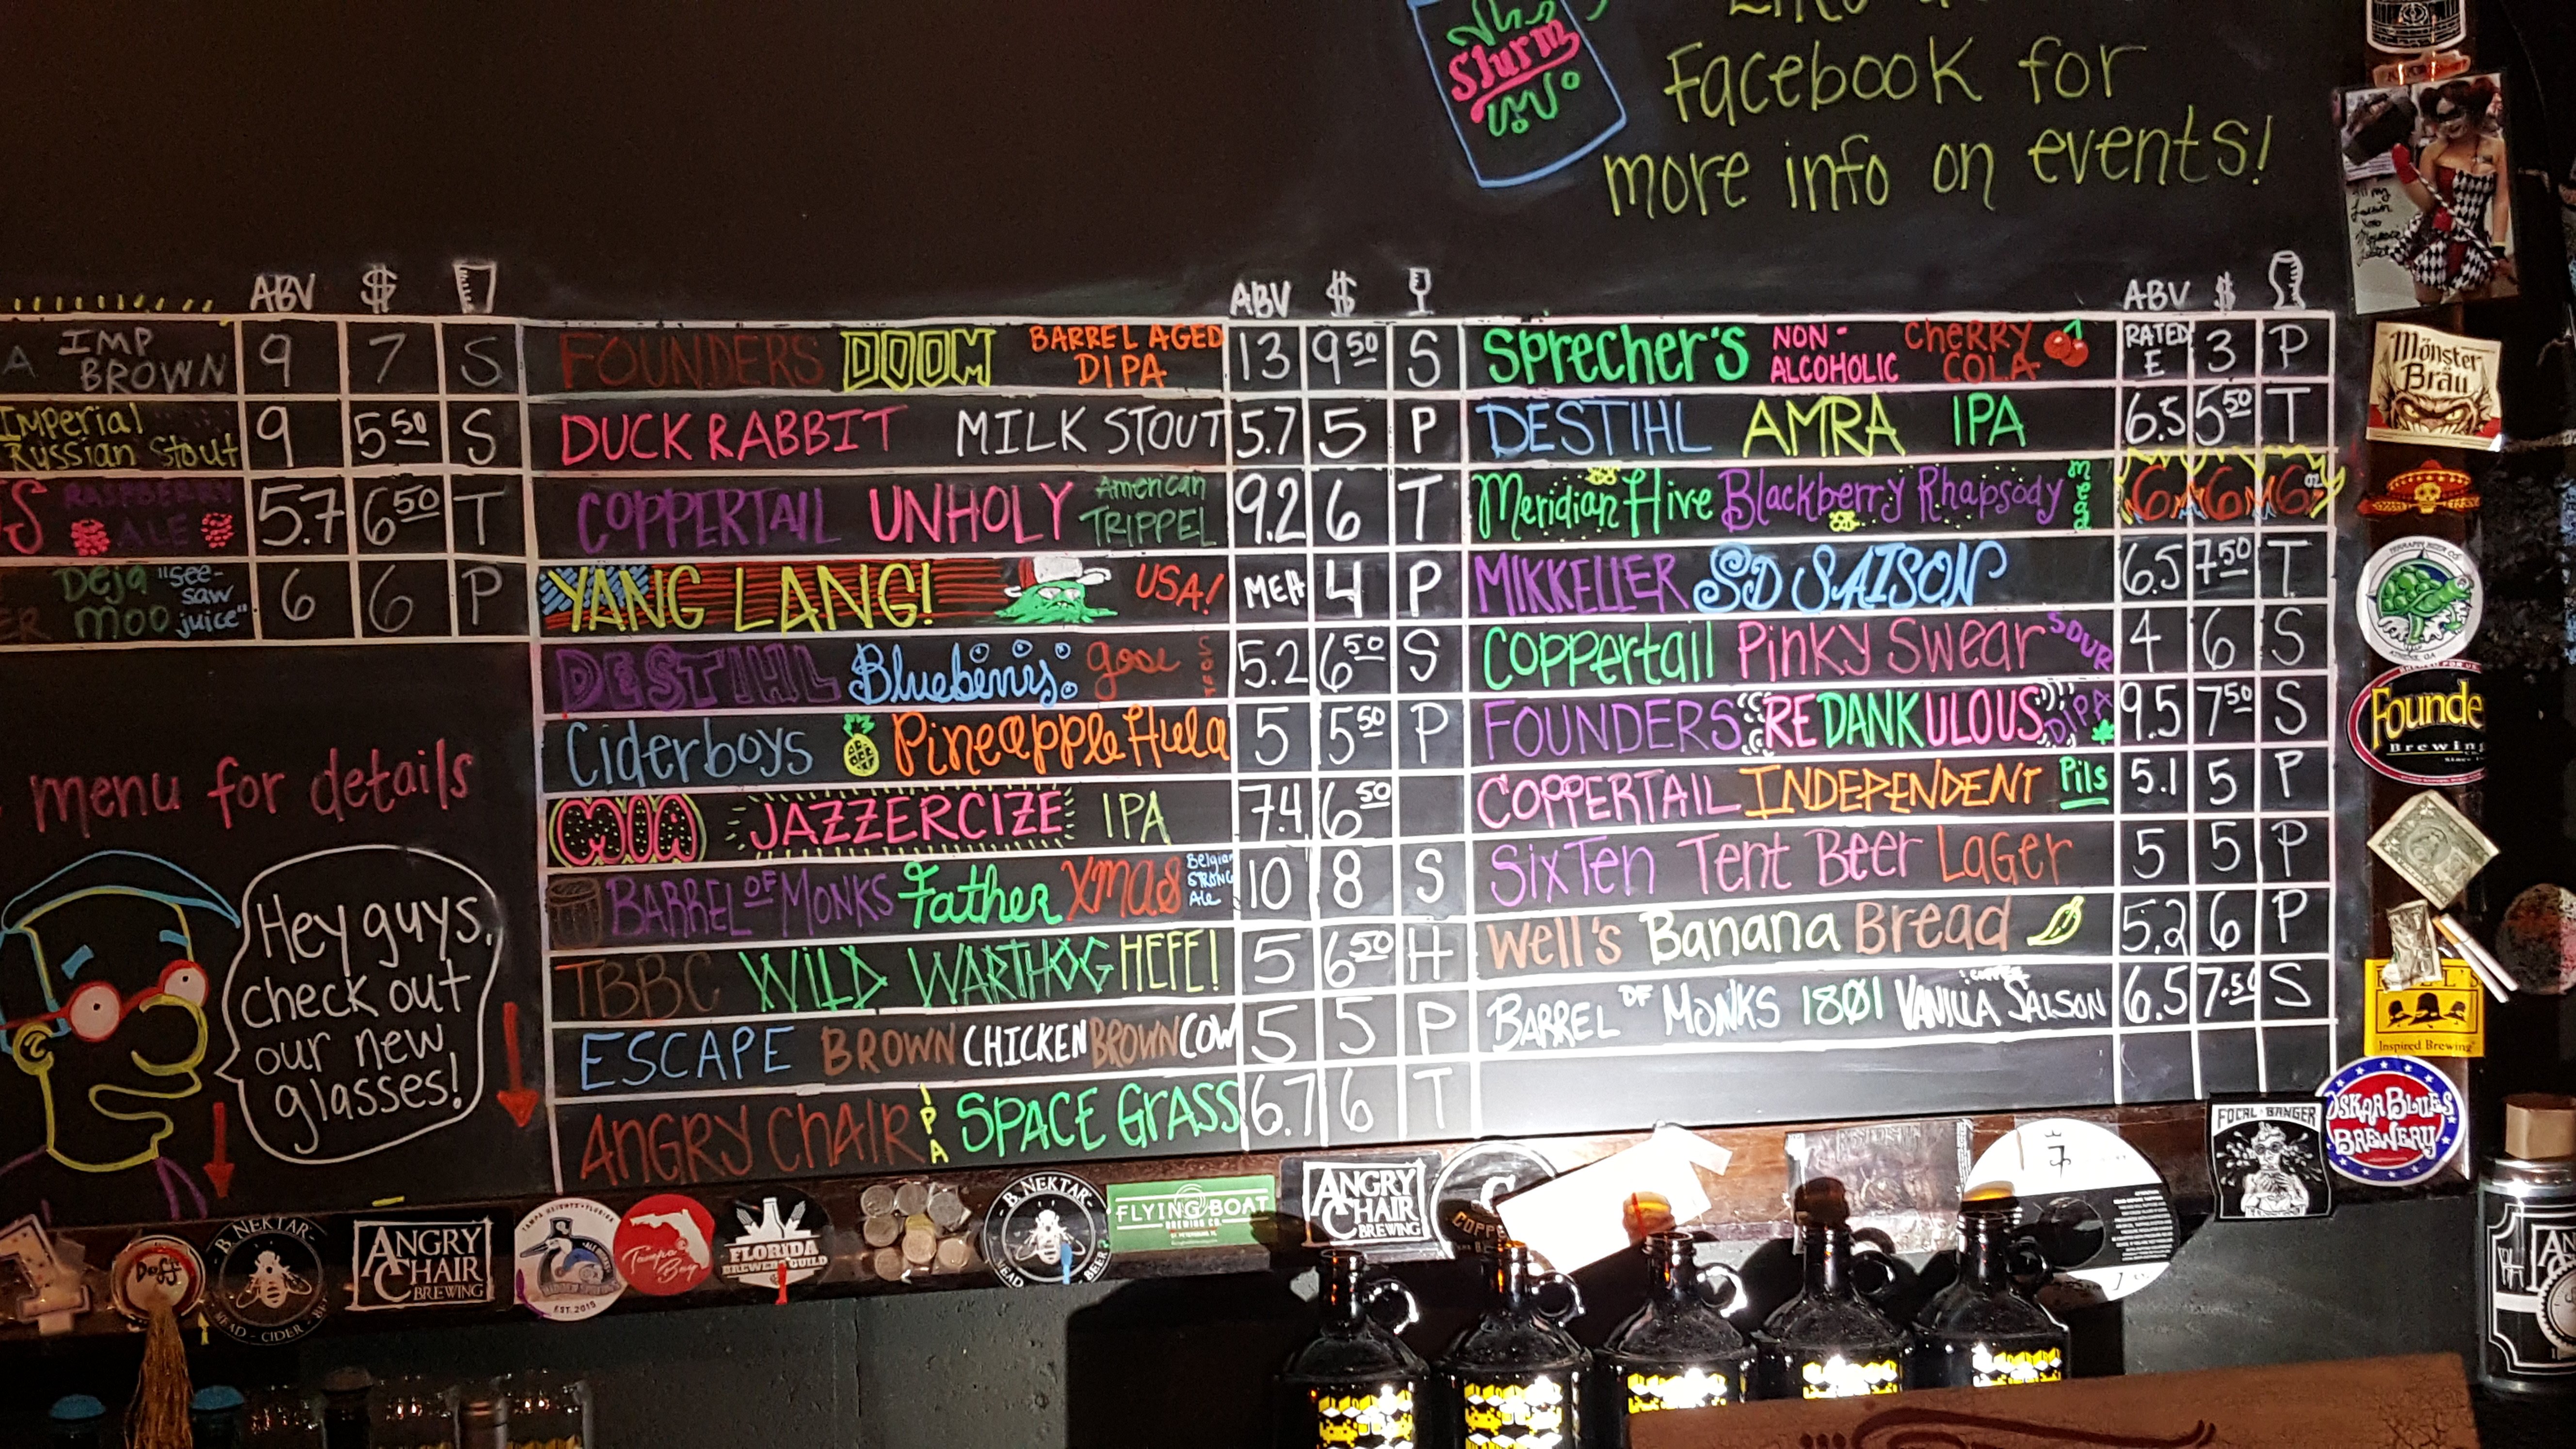 Slurm
Facebook for
more info on events!
ABV $
A IMP BROWN 9 7 S
Imperial Russian Stout 9 5.50 S
RASPBERRY ALE 5.7 6.50 T
Deja moo "see-saw juice" 6 6 P
menu for details
Hey guys,
check out
our new
glasses!
ABV $
FOUNDERS DOOM BARREL AGED DIPA 13 9.50 S
DUCK RABBIT MILK STOUT 5.7 5 P
COPPERTAIL UNHOLY American TRIPPEL 9.2 6 T
YANG LANG! USA! MEH 4 P
DESTIHL Blueberris gose 5.2 6.50 S
Ciderboys Pineapple Hula 5 5.50 P
MIA JAZZERCIZE IPA 7.4 6.50
BARREL OF MONKS Father XMAS Belgian STRONG Ale 10 8 S
TBBC WILD WARTHOG HEFE! 5 6.50 H
ESCAPE BROWN CHICKEN BROWN COW 5 5 P
ANGRY CHAIR IPA SPACE GRASS 6.7 6 T
ABV $
SPRECHER'S NON-ALCOHOLIC CHERRY COLA RATED E 3 P
DESTIHL AMRA IPA 6.5 5.50 T
Meridian Hive Blackberry Rhapsody 6 6 6oz
MIKKELLER SD SAISON 6.5 7.50 T
Coppertail Pinky Swear SOUR 4 6 S
FOUNDERS REDANKULOUS DIPA 9.5 7.50 S
COPPERTAIL INDEPENDENT Pils 5.1 5 P
SixTen Tent Beer Lager 5 5 P
Well's Banana Bread 5.2 6 P
BARREL OF MONKS 1801 VANILLA COFFEE SAISON 6.5 7.50 S
Mönster Bräu
ATHENS, GA
Founde
Brewing
Inspired Brewing
OSKAR BLUES
BREWERY
FOCAL BANGER
B. NEKTAR
MEAD - CIDER - BEER
ANGRY
CHAIR
BREWING
EST. 2015
Tampa
Bay
FLORIDA
BREWERS GUILD
B. NEKTAR
MEAD
BEER
FLYING BOAT
BREWING CO.
ANGRY
CHAIR
BREWING
7